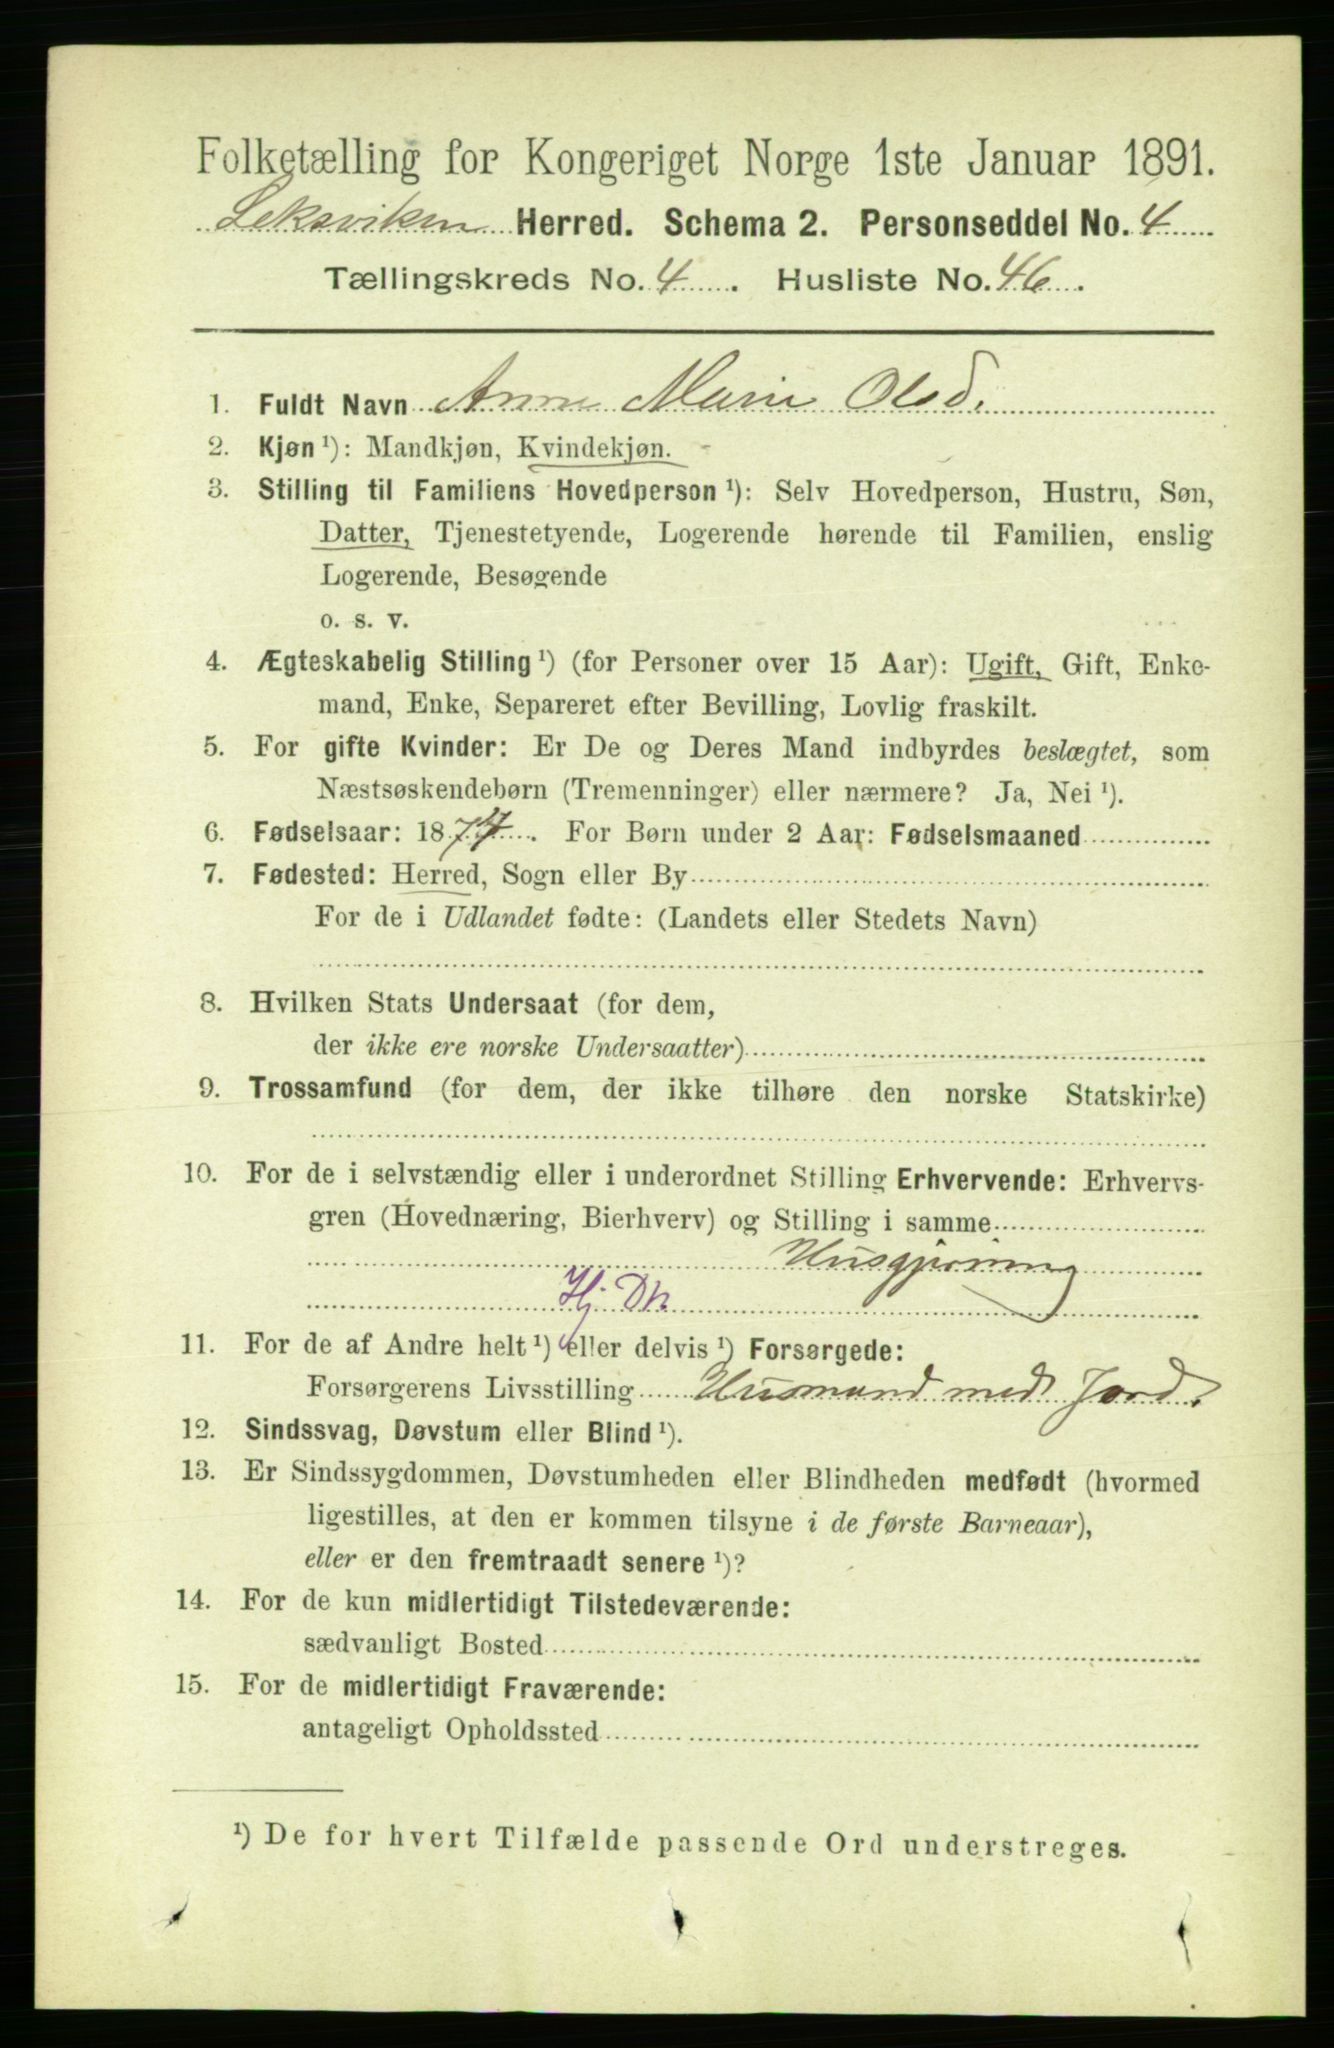 Folketælling for Kongeriget Norge 1ste Januar 1891.
Leksviken Herred. Schema 2. Personseddel No. 4
Tællingskreds No. 4. Husliste No. 46.
1. Fuldt Navn Anne Marie Olsd.
2. Kjøn ¹): Mandkjøn, Kvindekjøn.
3. Stilling til Familiens Hovedperson ¹): Selv Hovedperson, Hustru, Søn,
Datter, Tjenestetyende, Logerende hørende til Familien, enslig
Logerende, Besøgende
o. s. v.
4. Ægteskabelig Stilling ¹) (for Personer over 15 Aar): Ugift, Gift, Enke-
mand, Enke, Separeret efter Bevilling, Lovlig fraskilt.
5. For gifte Kvinder: Er De og Deres Mand indbyrdes beslægtet, som
Næstsøskendebørn (Tremenninger) eller nærmere? Ja, Nei ¹).
6. Fødselsaar: 1874. For Børn under 2 Aar: Fødselsmaaned
7. Fødested: Herred, Sogn eller By
For de i Udlandet fødte: (Landets eller Stedets Navn)
8. Hvilken Stats Undersaat (for dem,
der ikke ere norske Undersaatter)
9. Trossamfund (for dem, der ikke tilhøre den norske Statskirke)
10. For de i selvstændig eller i underordnet Stilling Erhvervende: Erhvervs-
gren (Hovednæring, Bierhverv) og Stilling i samme
Husgjerning
Hj. Dtr.
11. For de af Andre helt ¹) eller delvis ¹) Forsørgede:
Forsørgerens Livsstilling Husmand med Jord.
12. Sindssvag, Døvstum eller Blind ¹).
13. Er Sindssygdommen, Døvstumheden eller Blindheden medfødt (hvormed
ligestilles, at den er kommen tilsyne i de første Barneaar),
eller er den fremtraadt senere ¹)?
14. For de kun midlertidigt Tilstedeværende:
sædvanligt Bosted
15. For de midlertidigt Fraværende:
antageligt Opholdssted
¹) De for hvert Tilfælde passende Ord understreges.